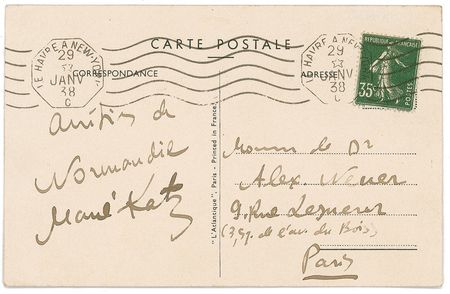 LE HAVRE A NEW-YORK
29
JANV
38
C
LE HAVRE A NEW-YORK
29
JANV
38
C
CARTE POSTALE
CORRESPONDANCE
ADRESSE
REPUBLIQUE FRANCAISE
35c
POSTES
Amitiés de
Normandie
Mané Katz
"L'Atlantique", Paris - Printed in France
Dr
Alex.
9. Rue Lesueur
de l'av. du Bois)
Paris